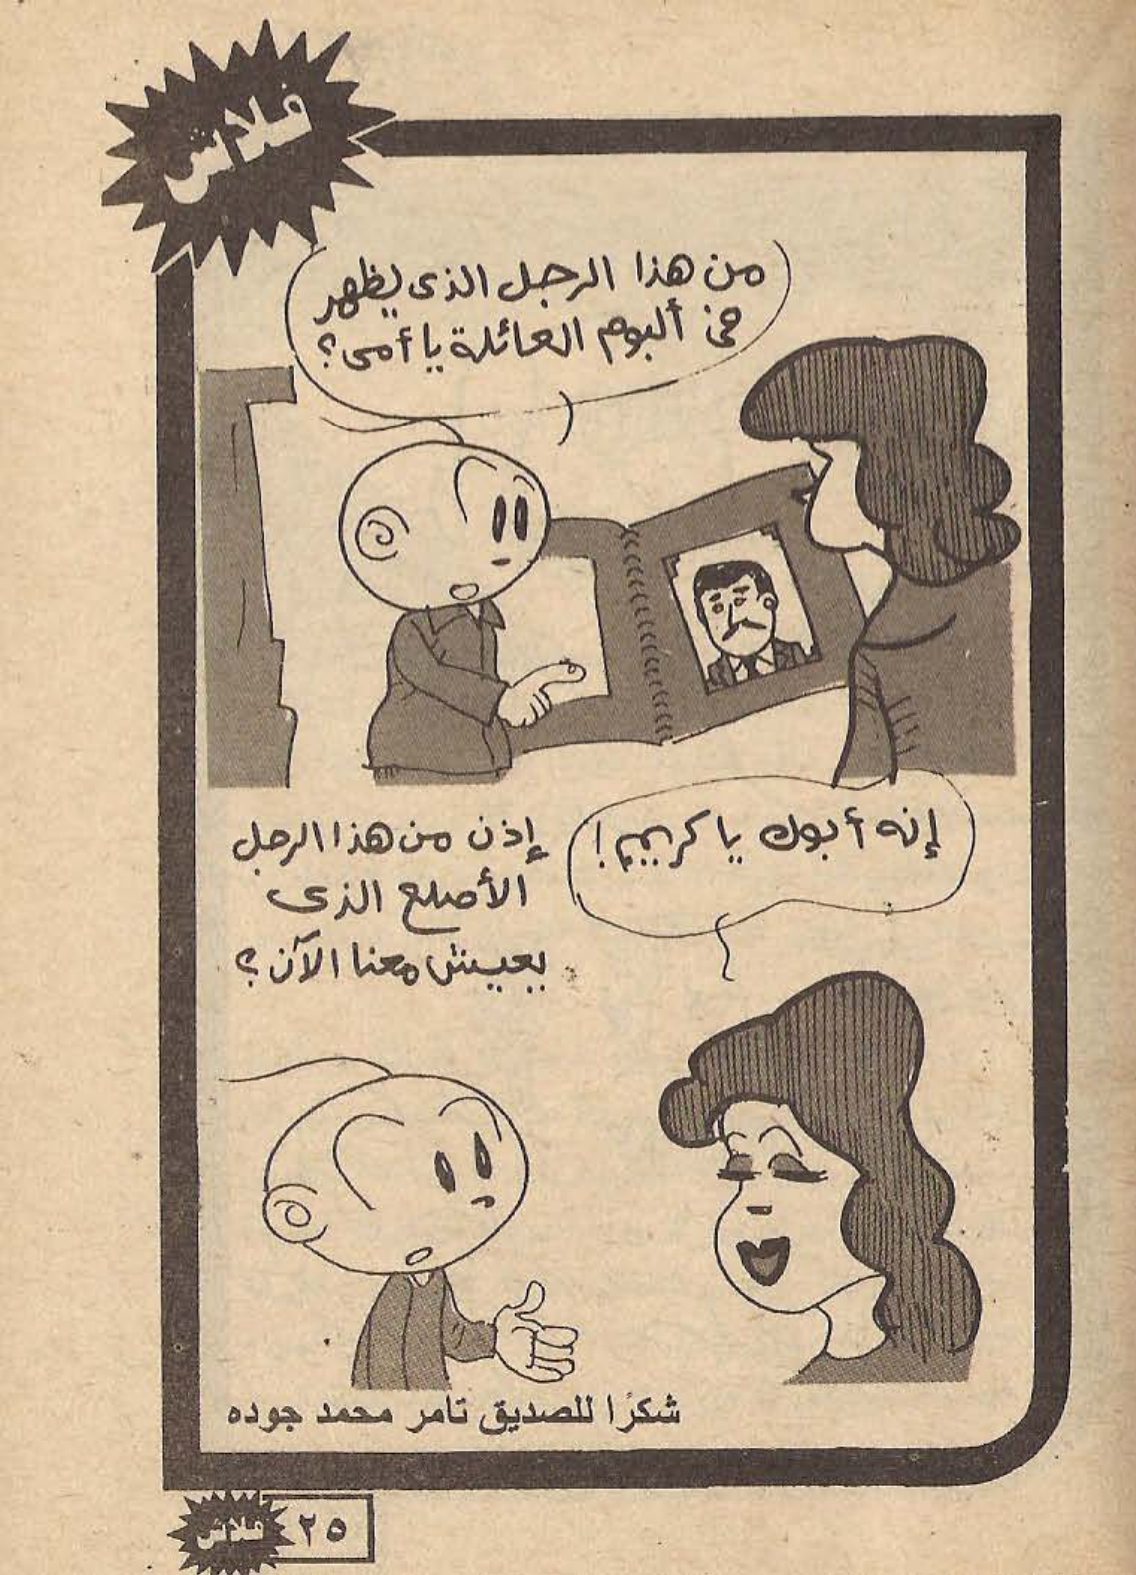 فلاش
من هذا الرجل الذى يظهر
فى ألبوم العائلة يا أمى؟
إنه أبوك يا كريم!
إذن من هذا الرجل
الأصلع الذى
يعيش معنا الآن؟
شكرًا للصديق تامر محمد جوده
٢٥
فلاش